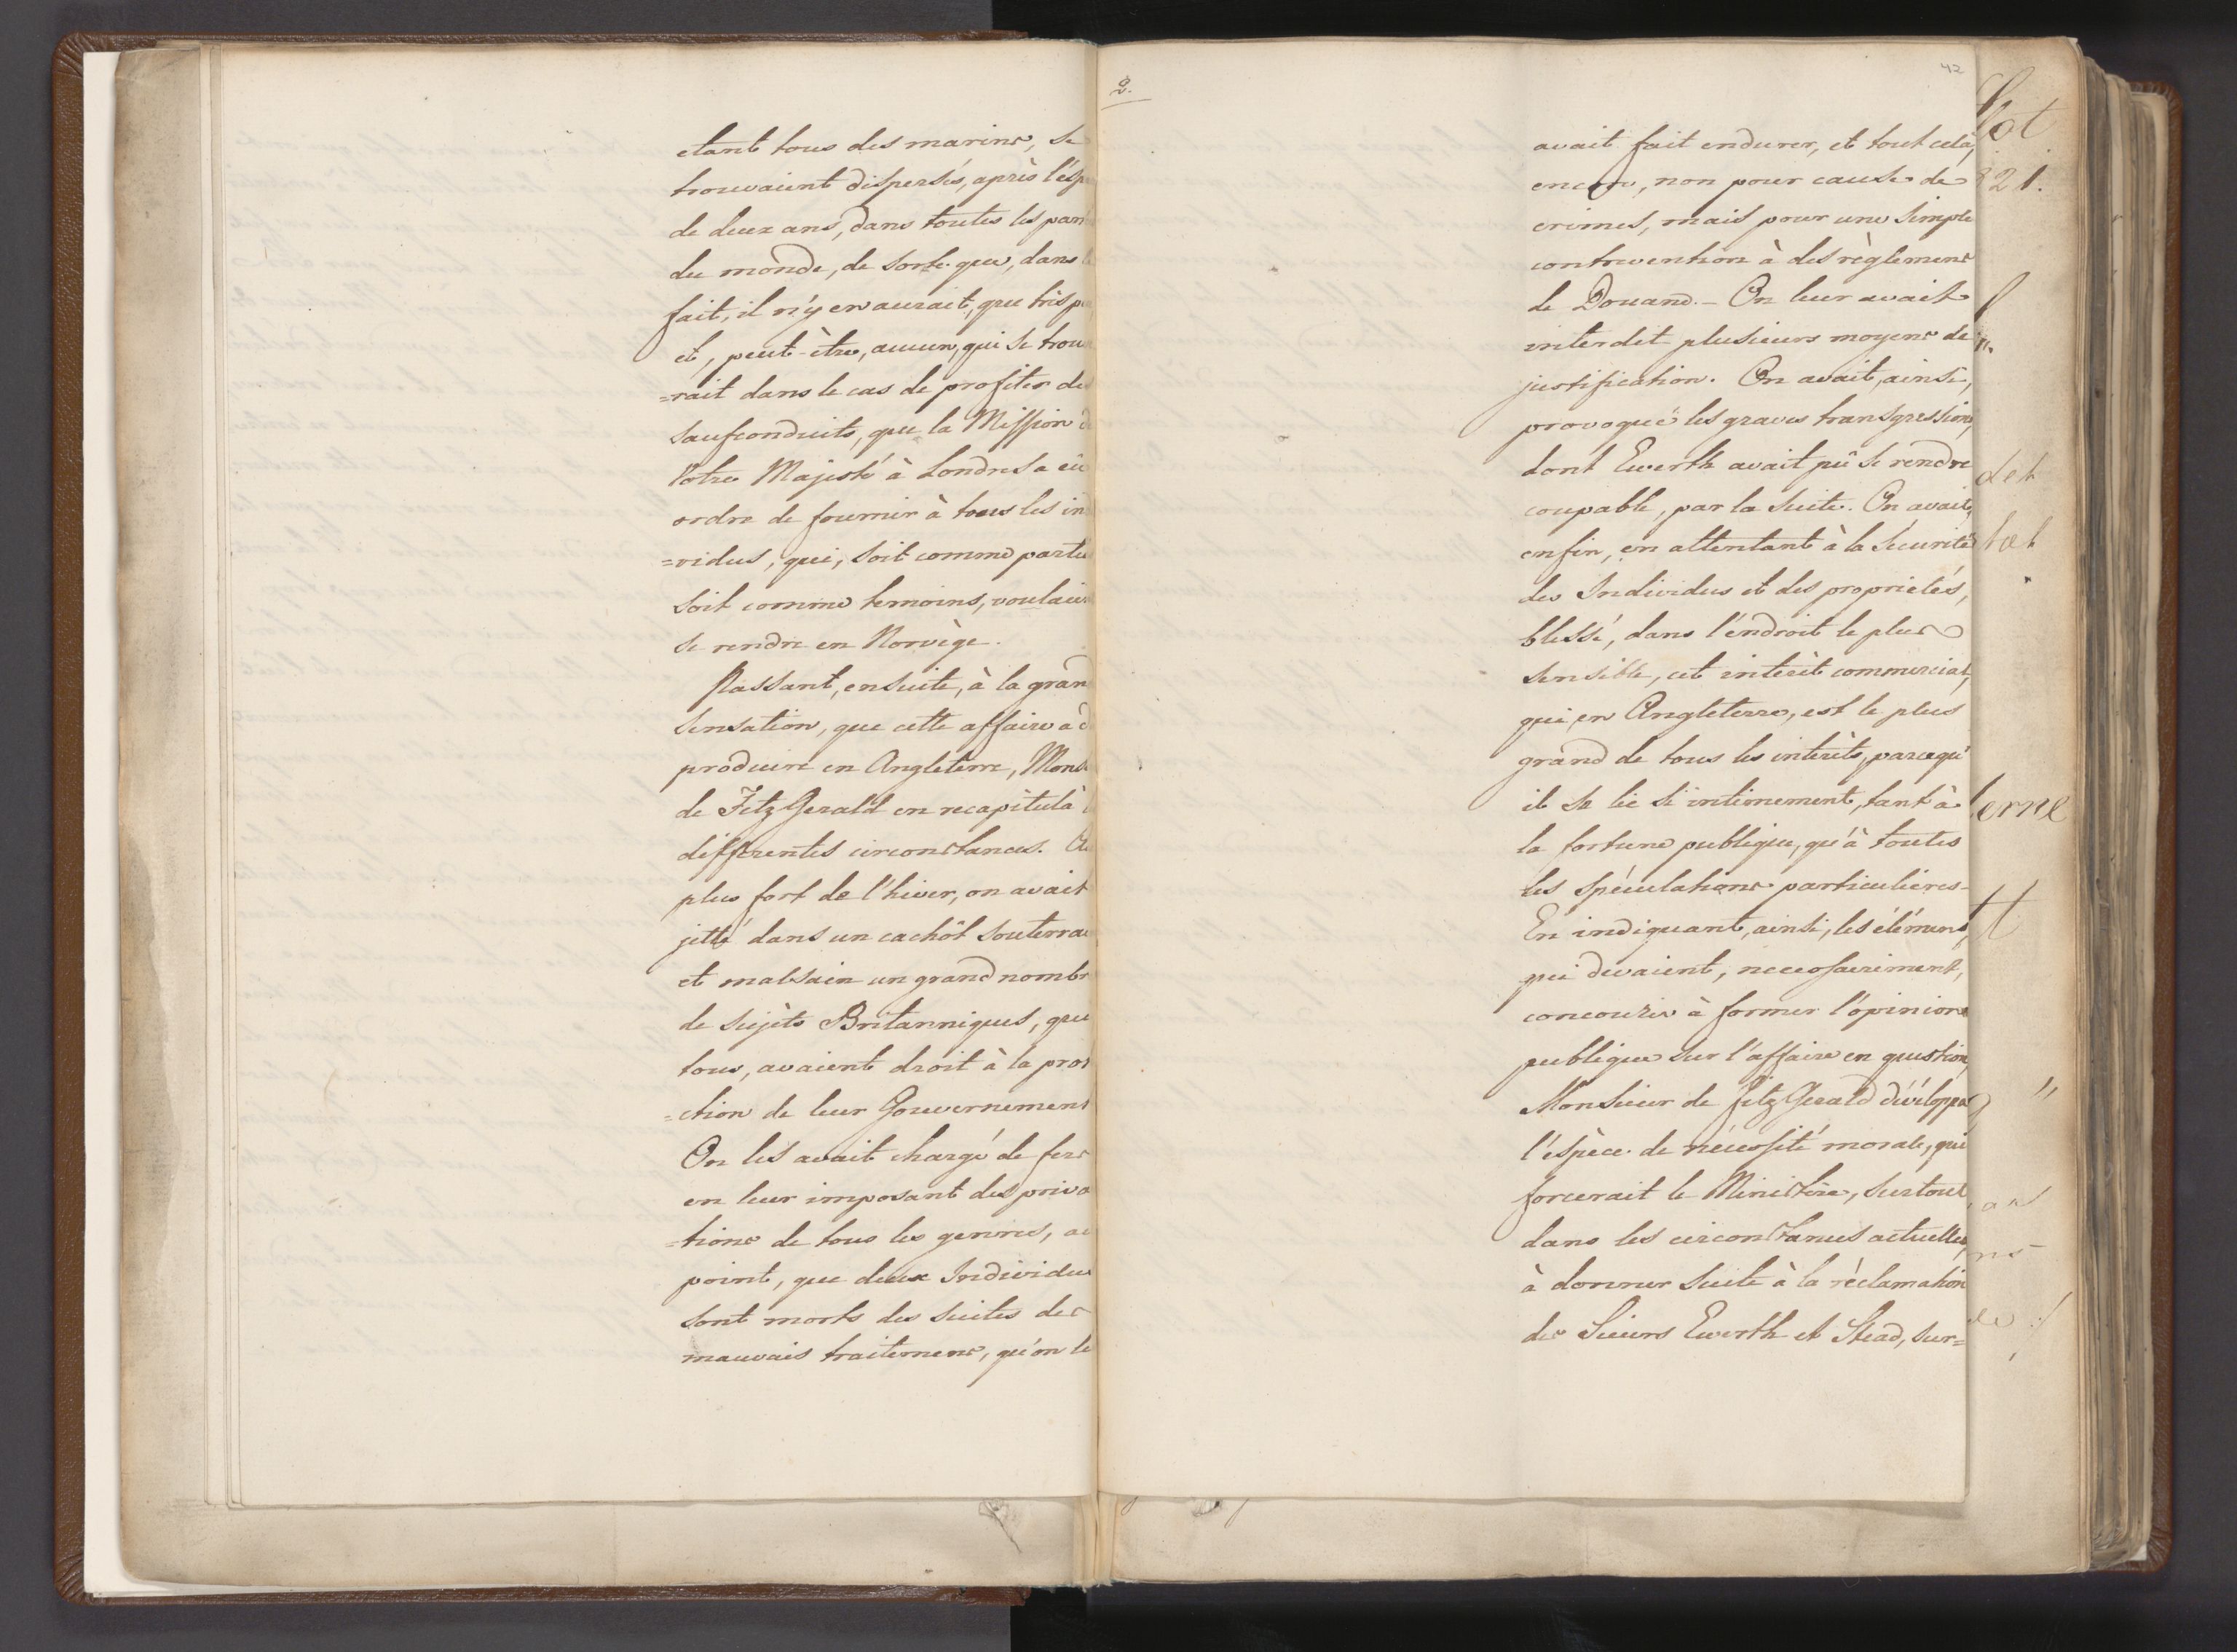 etant tous des marins, se
trouvaient dispersés, après l'esp
de deux ans, dans toutes les par
du monde, de sorte que, dans l
fait, il n'y en aurait, que très p
et, peut-être, aucun, qui se trou
=rait dans le cas de profiter de
saufconduits, que la Mission d
Votre Majesté à Londres a eû
ordre de fournir à tous les in
=vidus, qui, soit comme partie
soit comme temoins, voulaie
se rendre en Norvège.
Passant, ensuite, à la gran
sensation, que cette affaire a d
produire en Angleterre, Mons
de FitzGerald en recapitula
differentes circonstances. Au
plus fort de l'hiver, on avait
jetté dans un cachôt souterrai
et malsain un grand nombr
de sujèts Britanniques, que
tous, avaient droit à la prot
=ction de leur Gouvernement
On les avait chargé de fers
en leur imposant des priva
=tions de tous les genres, au
point, que deux Individus
sont morts des suites des
mauvais traitemens, qu'on le
2.
42
avait fait endurer, et tout celà,
encore, non pour cause de
crimes, mais pour une simple
contravention à des règlemens
de Douane. - On leur avait
interdit plusieurs moyens de
justification. On avait, ainsi,
provoqué les graves transgressions,
dont Ewerth avait pû se rendre
coupable, par la suite. On avait,
enfin, en attentant à la sécurité
des Individus et des proprietés,
blessé, dans l'endroit le plus
sensible, cet intérèt commercial,
qui, en Angleterre, est le plus
grand de tous les intérèts, parcequ'
il se lie si intimement, tant à
la fortune publique, qu'à toutes
les spéculations particulières -
En indiquant, ainsi, les élémens,
qui devaient, necessairement,
concourir à former l'opinion
publique sur l'affaire en question,
Monsieur de FitzGerald développa
l'éspèce de nécessité morale, qui
forcerait le Ministère, surtout
dans les circonstances actuelles,
à donner suite à la réclamation
des Sieurs Ewerth et Stead, sur=
21.
det
erne